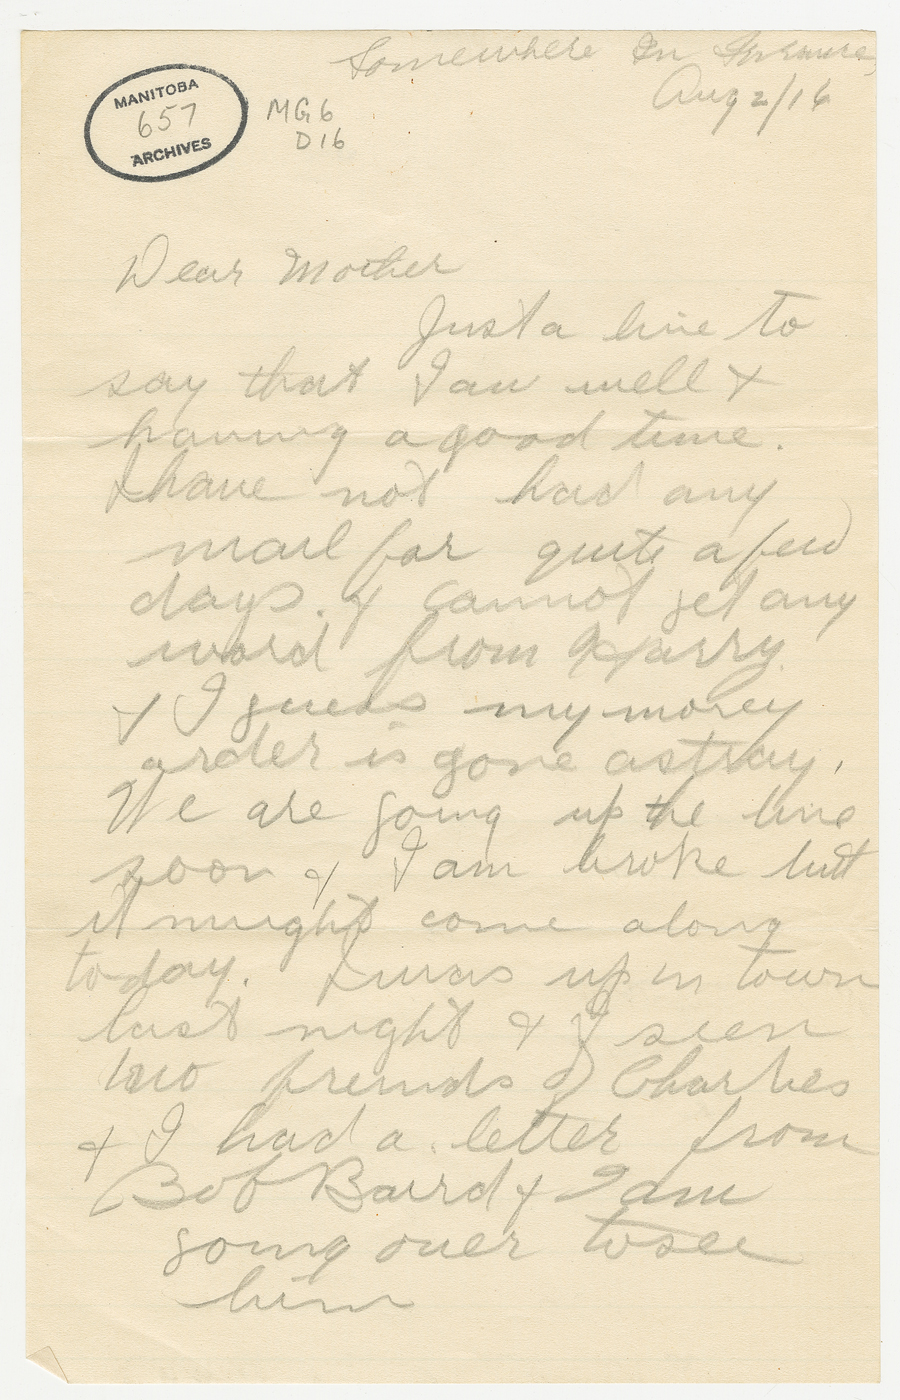 Somewhere In France,
Aug 2/16
MANITOBA
657
ARCHIVES
MG6
D16
Dear Mother
Just a line to
say that I am well &
having a good time.
I have not had any
mail for quite a few
days. & cannot get any
word from Harry.
& I guess my money
order is gone astray.
We are going up the line
soon & I am broke but
it might come along
today. I was up in town
last night & I seen
two freinds of Charlies
& I had a letter from
Bob Baird & I am
going over to see
him